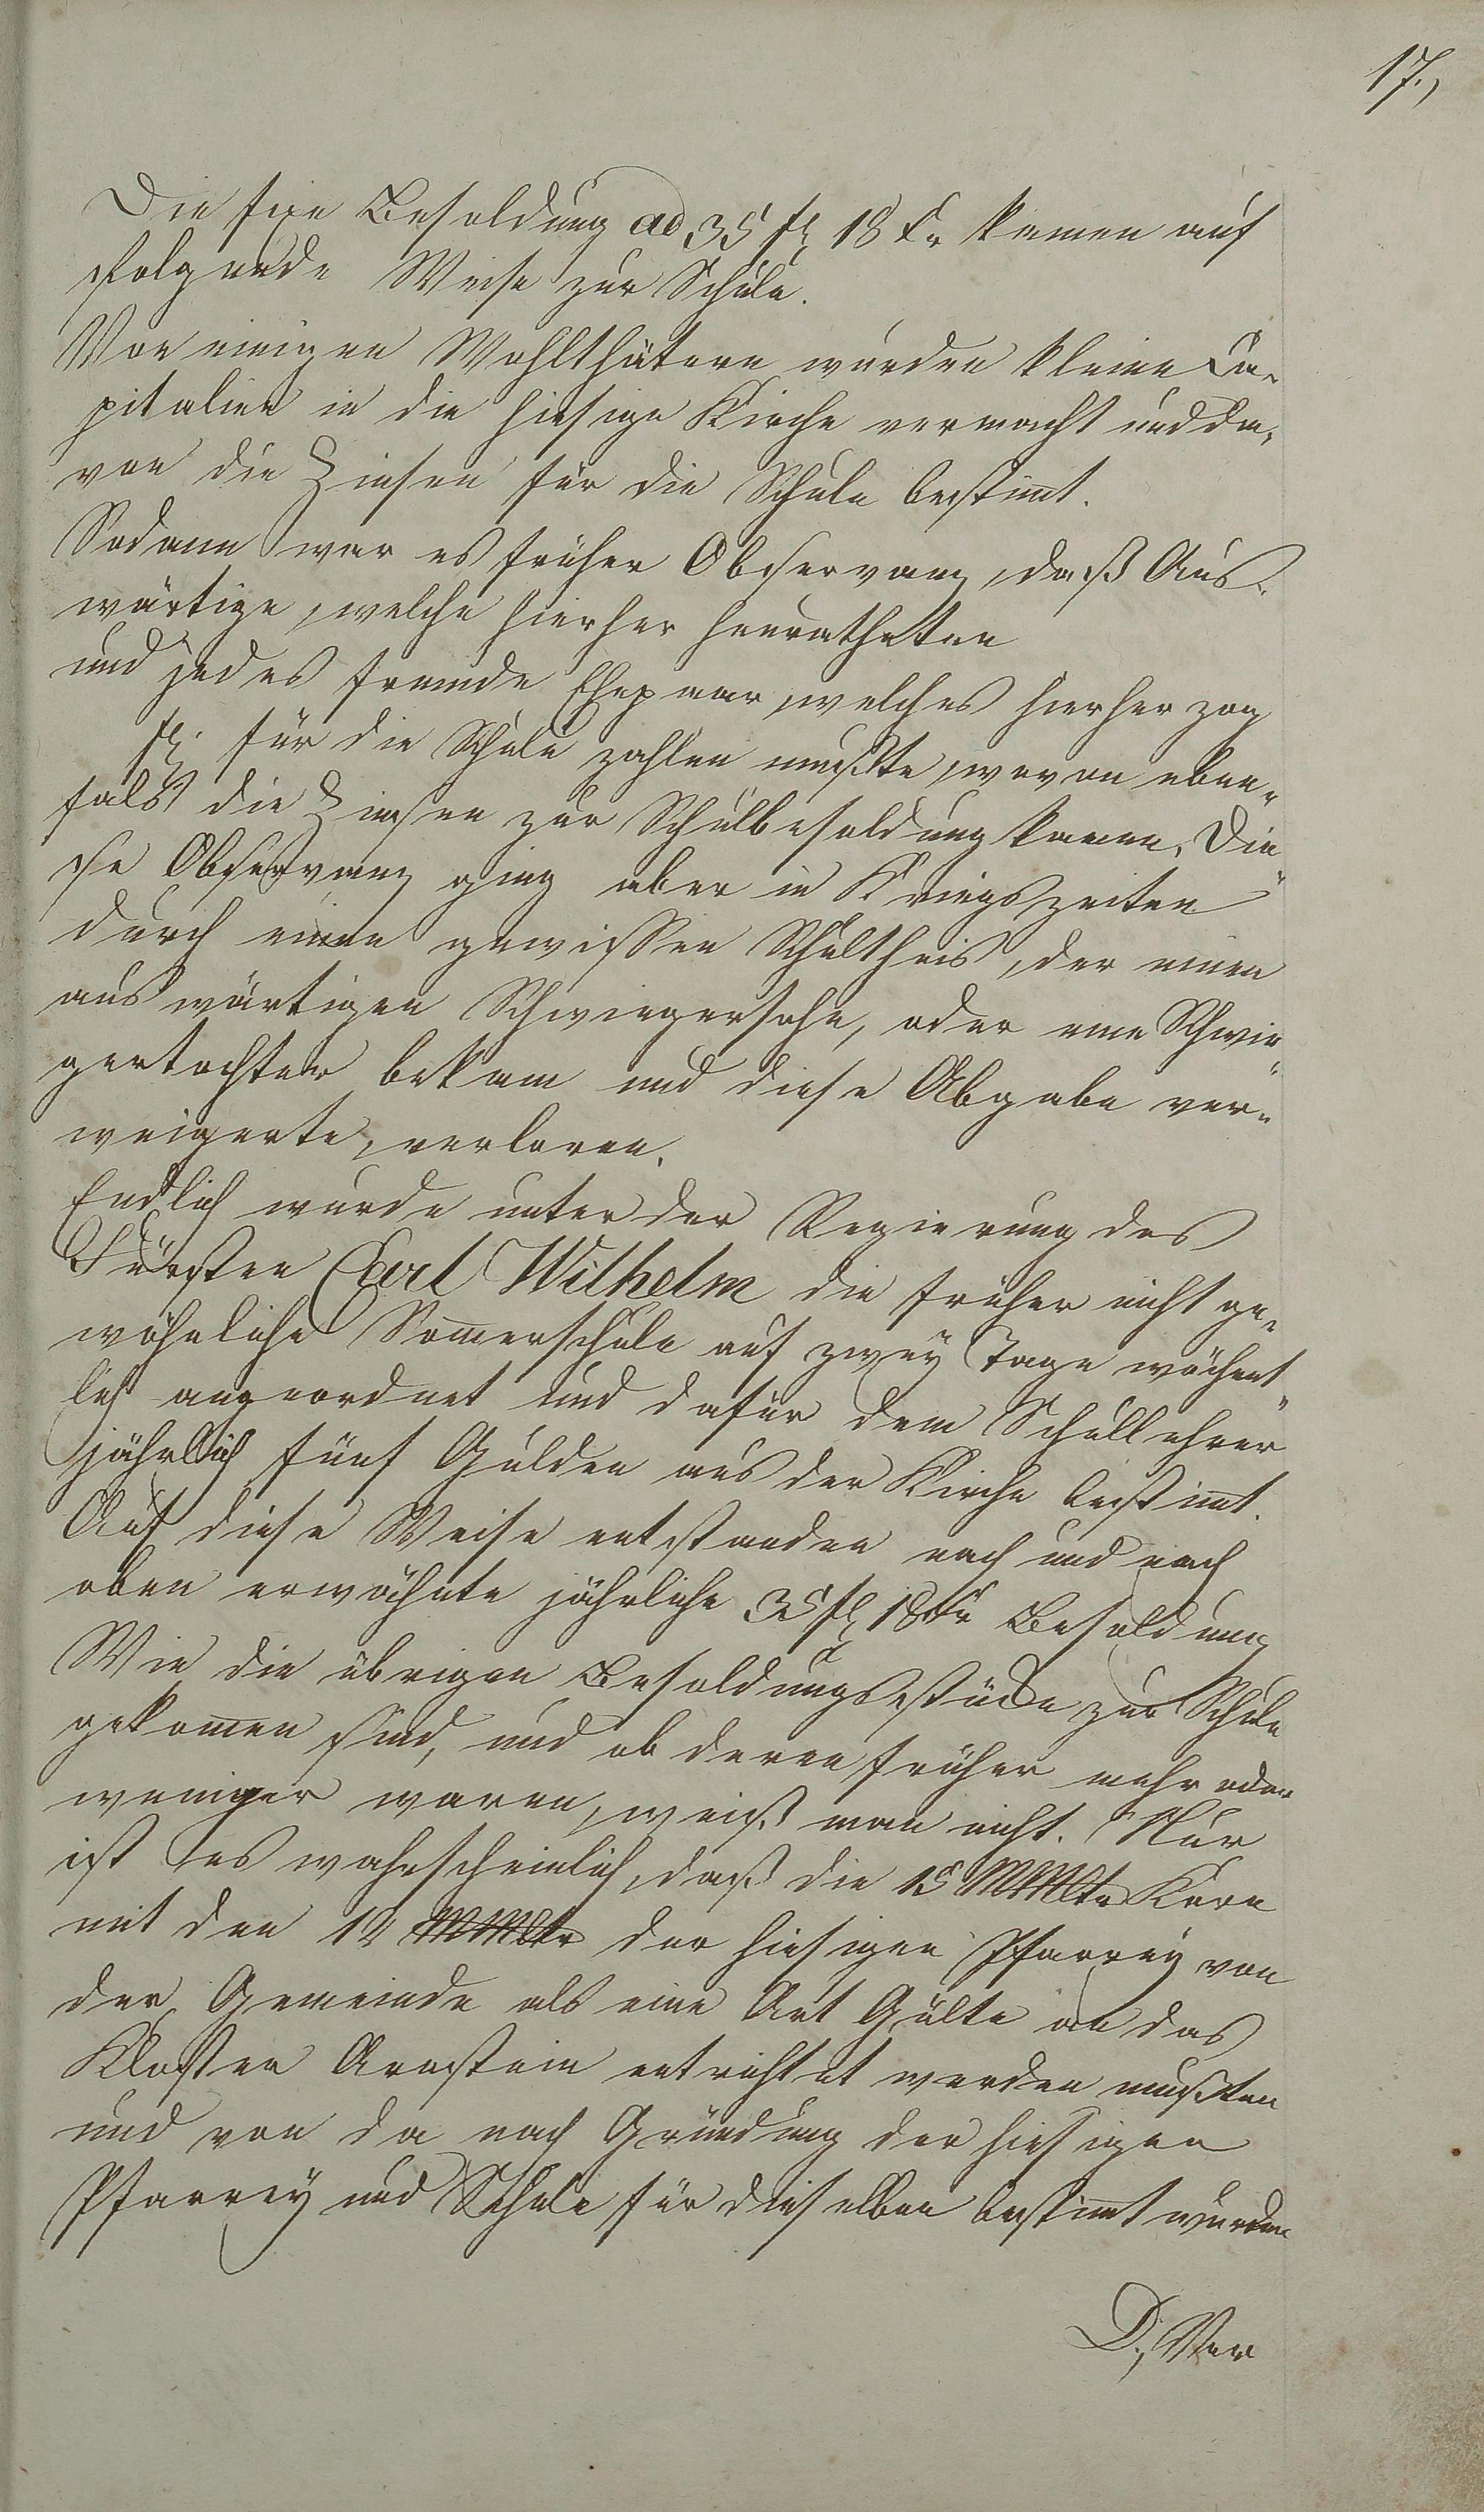 17.,
Die fixe Besoldung ad 35 fl 18 Kr kamen auf
folgende Weise zur Schule.
Von einigen Wohlthätern wurden kleine Ca-
pitalien in die hiesige Kirche vermacht und da-
von die Zinsen für die Schule bestimt.
Sodann war es früher Observanz, daß Aus-
wärtige, welche hierher heuratheten
und jedes fremde Ehepaar, welches hierher zog
fl. für die Schule zahlen mußte, wovon eben-
fals die Zinsen zur Schulbesoldung kamen. Die-
se Observanz ging aber in Kriegszeiten
durch einen gewissen Schultheis, der einen
auswärtigen Schwiegersohn, oder eine Schwie-
gertochter bekam und diese Abgabe ver-
weigerte, verloren.
Endlich wurde unter der Regierung des
Fürsten Carl Wilhelm die früher nicht ge-
wöhnliche Somerschule auf zwey Tage wöchent-
lich angeordnet und dafür dem Schullehrer
jährlich fünf Gulden aus der Kirche bestimt.
Auf diese Weise entstanden nach und nach
oben erwähnte jährliche 35 fl 18 Kr Besoldung
Wie die übrigen Besoldungsstücke zur Schule
gekomen sind, und ob deren früher mehr oder
weniger waren, weiß man nicht. Nur
ist es wahrscheinlich, daß die 15 Mltr Korn
mit den 12 Mltr der hiesigen Pfarrey von
der Gemeinde als eine Art Gülte an das
Kloster Arnstein entrichtet werden mußten
und von da nach Gründung der hiesigen
Pfarrey und Schule für dieselben bestimt wurden
D., Ver